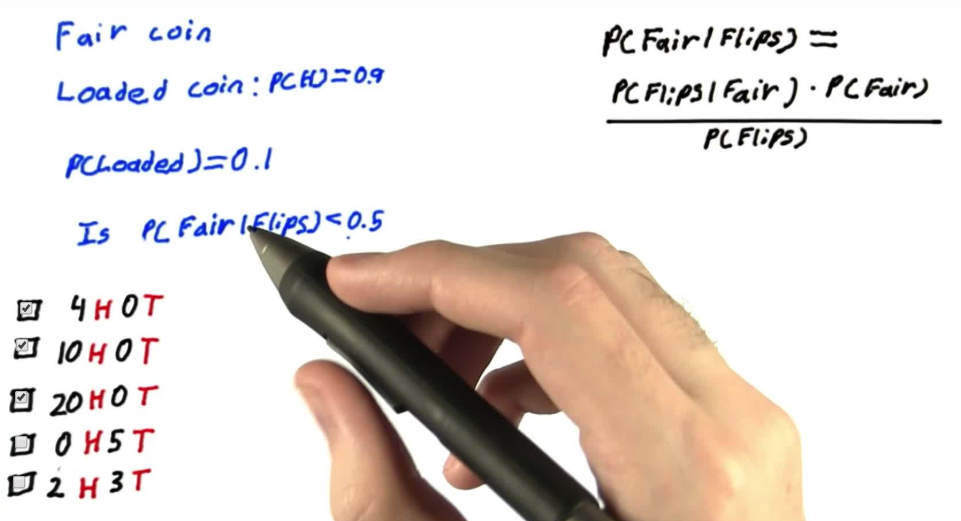 Fair coin
Loaded coin: P(H)=0.9
P(Loaded)=0.1
Is P(Fair|Flips)<0.5
4 H 0 T
10 H 0 T
20 H 0 T
0 H 5 T
2 H 3 T
P(Fair|Flips)=
P(Flips|Fair)·P(Fair)
P(Flips)